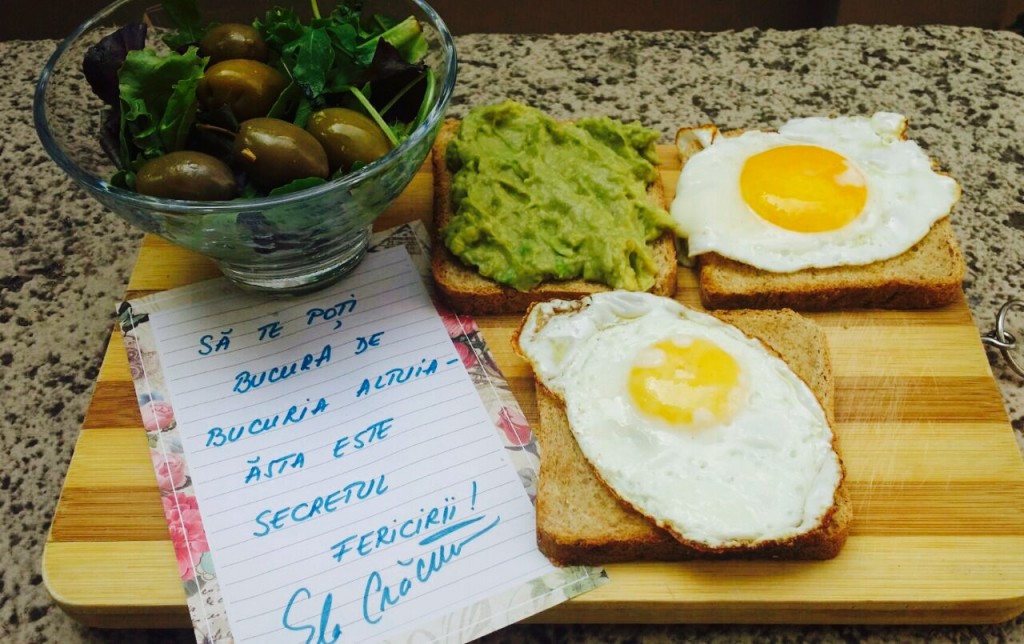 SĂ TE POȚI
BUCURA DE
BUCURIA ALTUIA -
ĂSTA ESTE
SECRETUL
FERICIRII!
Crăciun